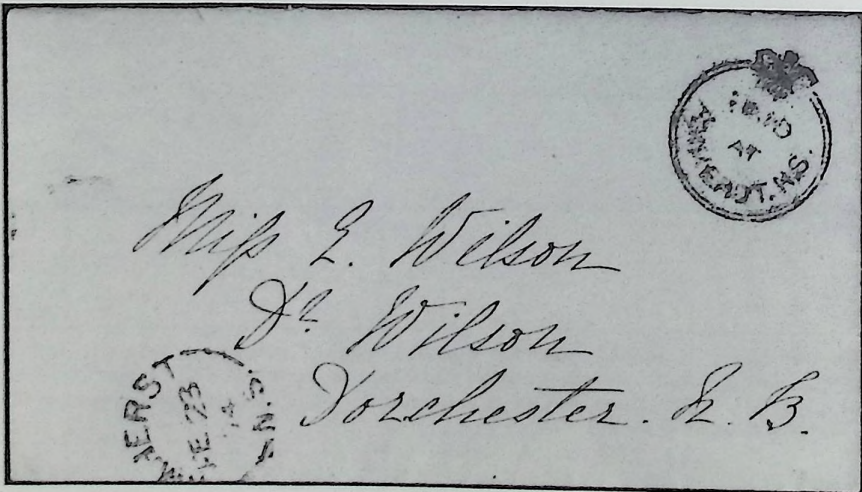 PAID
AT
AMHERST. N.S.
Miss E. Wilson
Dr Wilson
Dorchester. N. B.
AMHERST
DE 23
N.S.